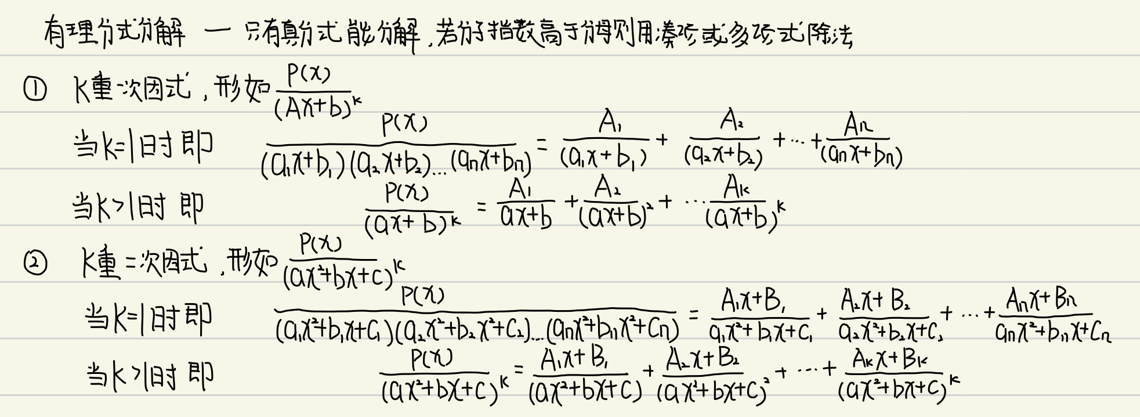 有理分式分解 — 只有真分式能分解,若分子指数高于分母则用凑项或多项式除法
① K重一次因式,形如 P(x)/(Ax+b)^k
当k=1时即 P(x)/((a₁x+b₁)(a₂x+b₂)...(aₙx+bₙ)) = A₁/(a₁x+b₁) + A₂/(a₂x+b₂) + ... + Aₙ/(aₙx+bₙ)
当k>1时 即 P(x)/(ax+b)^k = A₁/(ax+b) + A₂/(ax+b)² + ... Aₖ/(ax+b)^k
② K重二次因式,形如 P(x)/(ax²+bx+c)^k
当k=1时即 P(x)/((a₁x²+b₁x+C₁)(a₂x²+b₂x²+C₂)...(aₙx²+bₙx²+Cₙ)) = (A₁x+B₁)/(a₁x²+b₁x+C₁) + (A₂x+B₂)/(a₂x²+b₂x+C₂) + ... + (Aₙx+Bₙ)/(aₙx²+bₙx+Cₙ)
当k>1时 即 P(x)/(ax²+bx+c)^k = (A₁x+B₁)/(ax²+bx+c) + (A₂x+B₂)/(ax²+bx+c)² + ... + (Aₖx+Bₖ)/(ax²+bx+c)^k